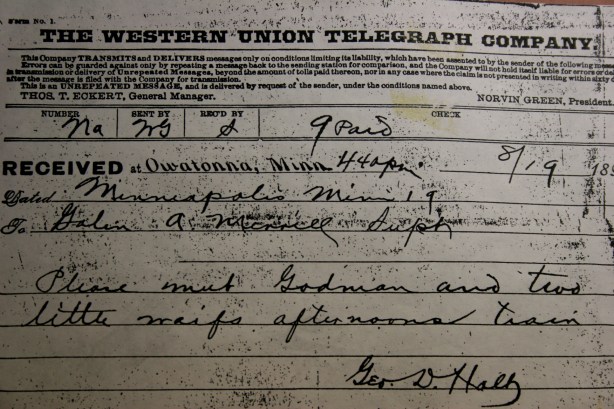 FORM No. 1.
THE WESTERN UNION TELEGRAPH COMPANY.
This Company TRANSMITS and DELIVERS messages only on conditions limiting its liability, which have been assented to by the sender of the following message
Errors can be guarded against only by repeating a message back to the sending station for comparison, and the Company will not hold itself liable for errors or
in transmission or delivery of Unrepeated Messages, beyond the amount of tolls paid thereon, nor in any case where the claim is not presented in writing within sixty
after the message is filed with the Company for transmission.
This is an UNREPEATED MESSAGE, and is delivered by request of the sender, under the conditions named above.
THOS. T. ECKERT, General Manager. NORVIN GREEN, President
NUMBER SENT BY REC'D BY CHECK
Na 9 Paid
RECEIVED at Owatonna, Minn 440pm 8/19 18
Dated Minneapolis Minn 19
To Galen A Merrill Supt
Please meet Godman and two
little waifs afternoons train
Geo. D. Holt